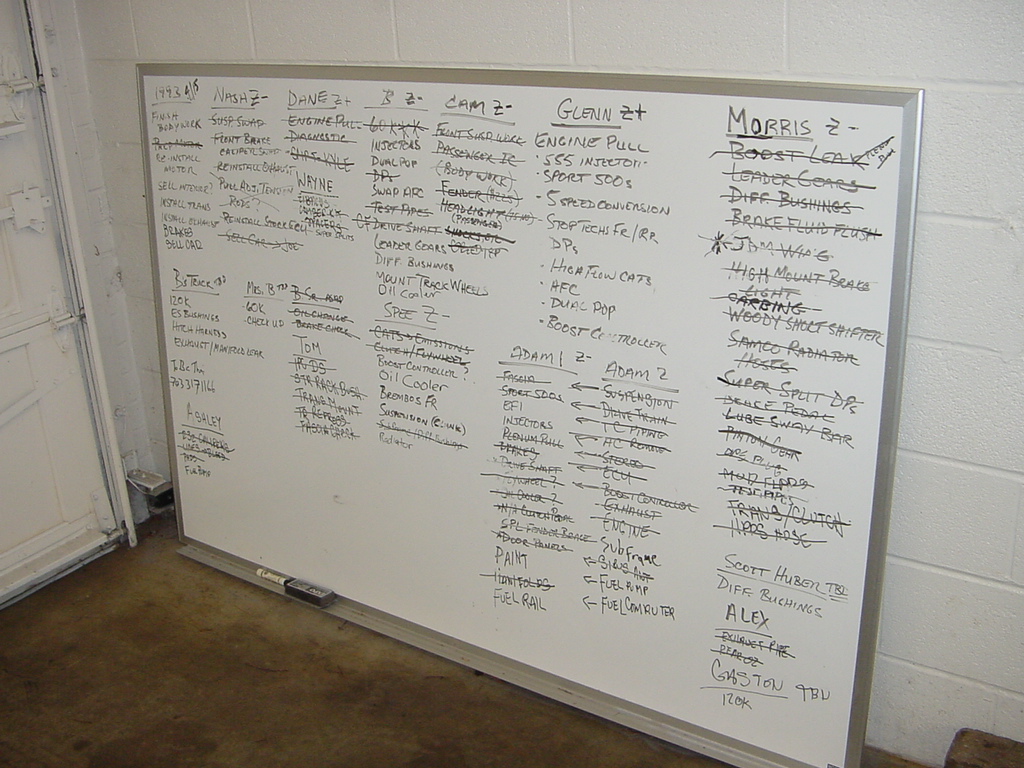 1993
FINISH
BODY WORK
RE-INSTALL
MOTOR
SELL INTERIOR?
INSTALL TRANS
INSTALL EXHAUST
BRAKES
SELL CAR
NASH Z-
SUSP SWAP
FRONT BRAKE
CALIPER SWAP
REINSTALL EXHAUST
PULL ADJ. TENSION
RODS?
REINSTALL STOCK ECU
SELL CAR → JOE
DANE Z+
ENGINE PULL
DIAGNOSTIC
WAYNE
B Z-
60K
INJECTORS
DUAL POP
DPs
SWAP AFC
TEST PIPES
DRIVE SHAFT
LEADER GEARS
DIFF BUSHINGS
MOUNT TRACK WHEELS
OIL COOLER
CAM Z-
FRONT SUSP WORK
PASSENGER
(BODY WORK)
FENDER
HEADLIGHT
(PASSENGER)
GLENN Z+
ENGINE PULL
· 555 INJECTOR
· SPORT 500s
· 5 SPEED CONVERSION
STOPTECHS FR/RR
DPs
· HIGH FLOW CATS
· AFC
· DUAL POP
· BOOST CONTROLLER
MORRIS Z-
BOOST LEAK
LEADER GEARS
DIFF BUSHINGS
BRAKE FLUID FLUSH
JDM WING
HIGH MOUNT BRAKE
LIGHT
WOODY SHORT SHIFTER
SAMCO RADIATOR
HOSES
SUPER SPLIT DPs
LUBE SWAY BAR
PINION GEAR
TRANS/CLUTCH
HPPS HOSE
SCOTT HUBER TBD
DIFF. BUSHINGS
ALEX
EXHAUST PIPE
GASTON TBD
120K
B's TRUCK
120K
ES BUSHINGS
HITCH HARNESS
EXHAUST/MANIFOLD LEAK
7033171166
ASHLEY
MRS. B
60K
CHECK UP
B SR
OIL CHANGE
BRAKE CHECK
TOM
STR RACK BUSH
TRANS MOUNT
SPEE Z-
CATS → EMISSIONS
CLUTCH/FLYWHEEL
BOOST CONTROLLER?
OIL COOLER
BREMBOS FR
SUSPENSION (CLUNK)
RADIATOR
ADAM 1 Z-
FASCIA
SPORT 500s
EFI
INJECTORS
PLENUM PULL
BRAKES
DRIVE SHAFT
FLYWHEEL?
OIL COOLER?
SPL FENDER BRACE
DOOR PANELS
PAINT
MANIFOLDS
FUEL RAIL
ADAM 2
← SUSPENSION
← DRIVE TRAIN
← IC PIPING
← AC REMOVE
← STEREO
← ECU
← BOOST CONTROLLER
EXHAUST
ENGINE
SUBFRAME
← FUEL PUMP
← FUEL COMPUTER